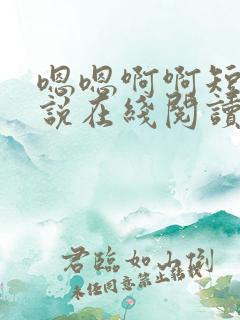 嗯嗯啊啊短
說在綫閱讀
君臨如山倒
未經同意禁止轉載